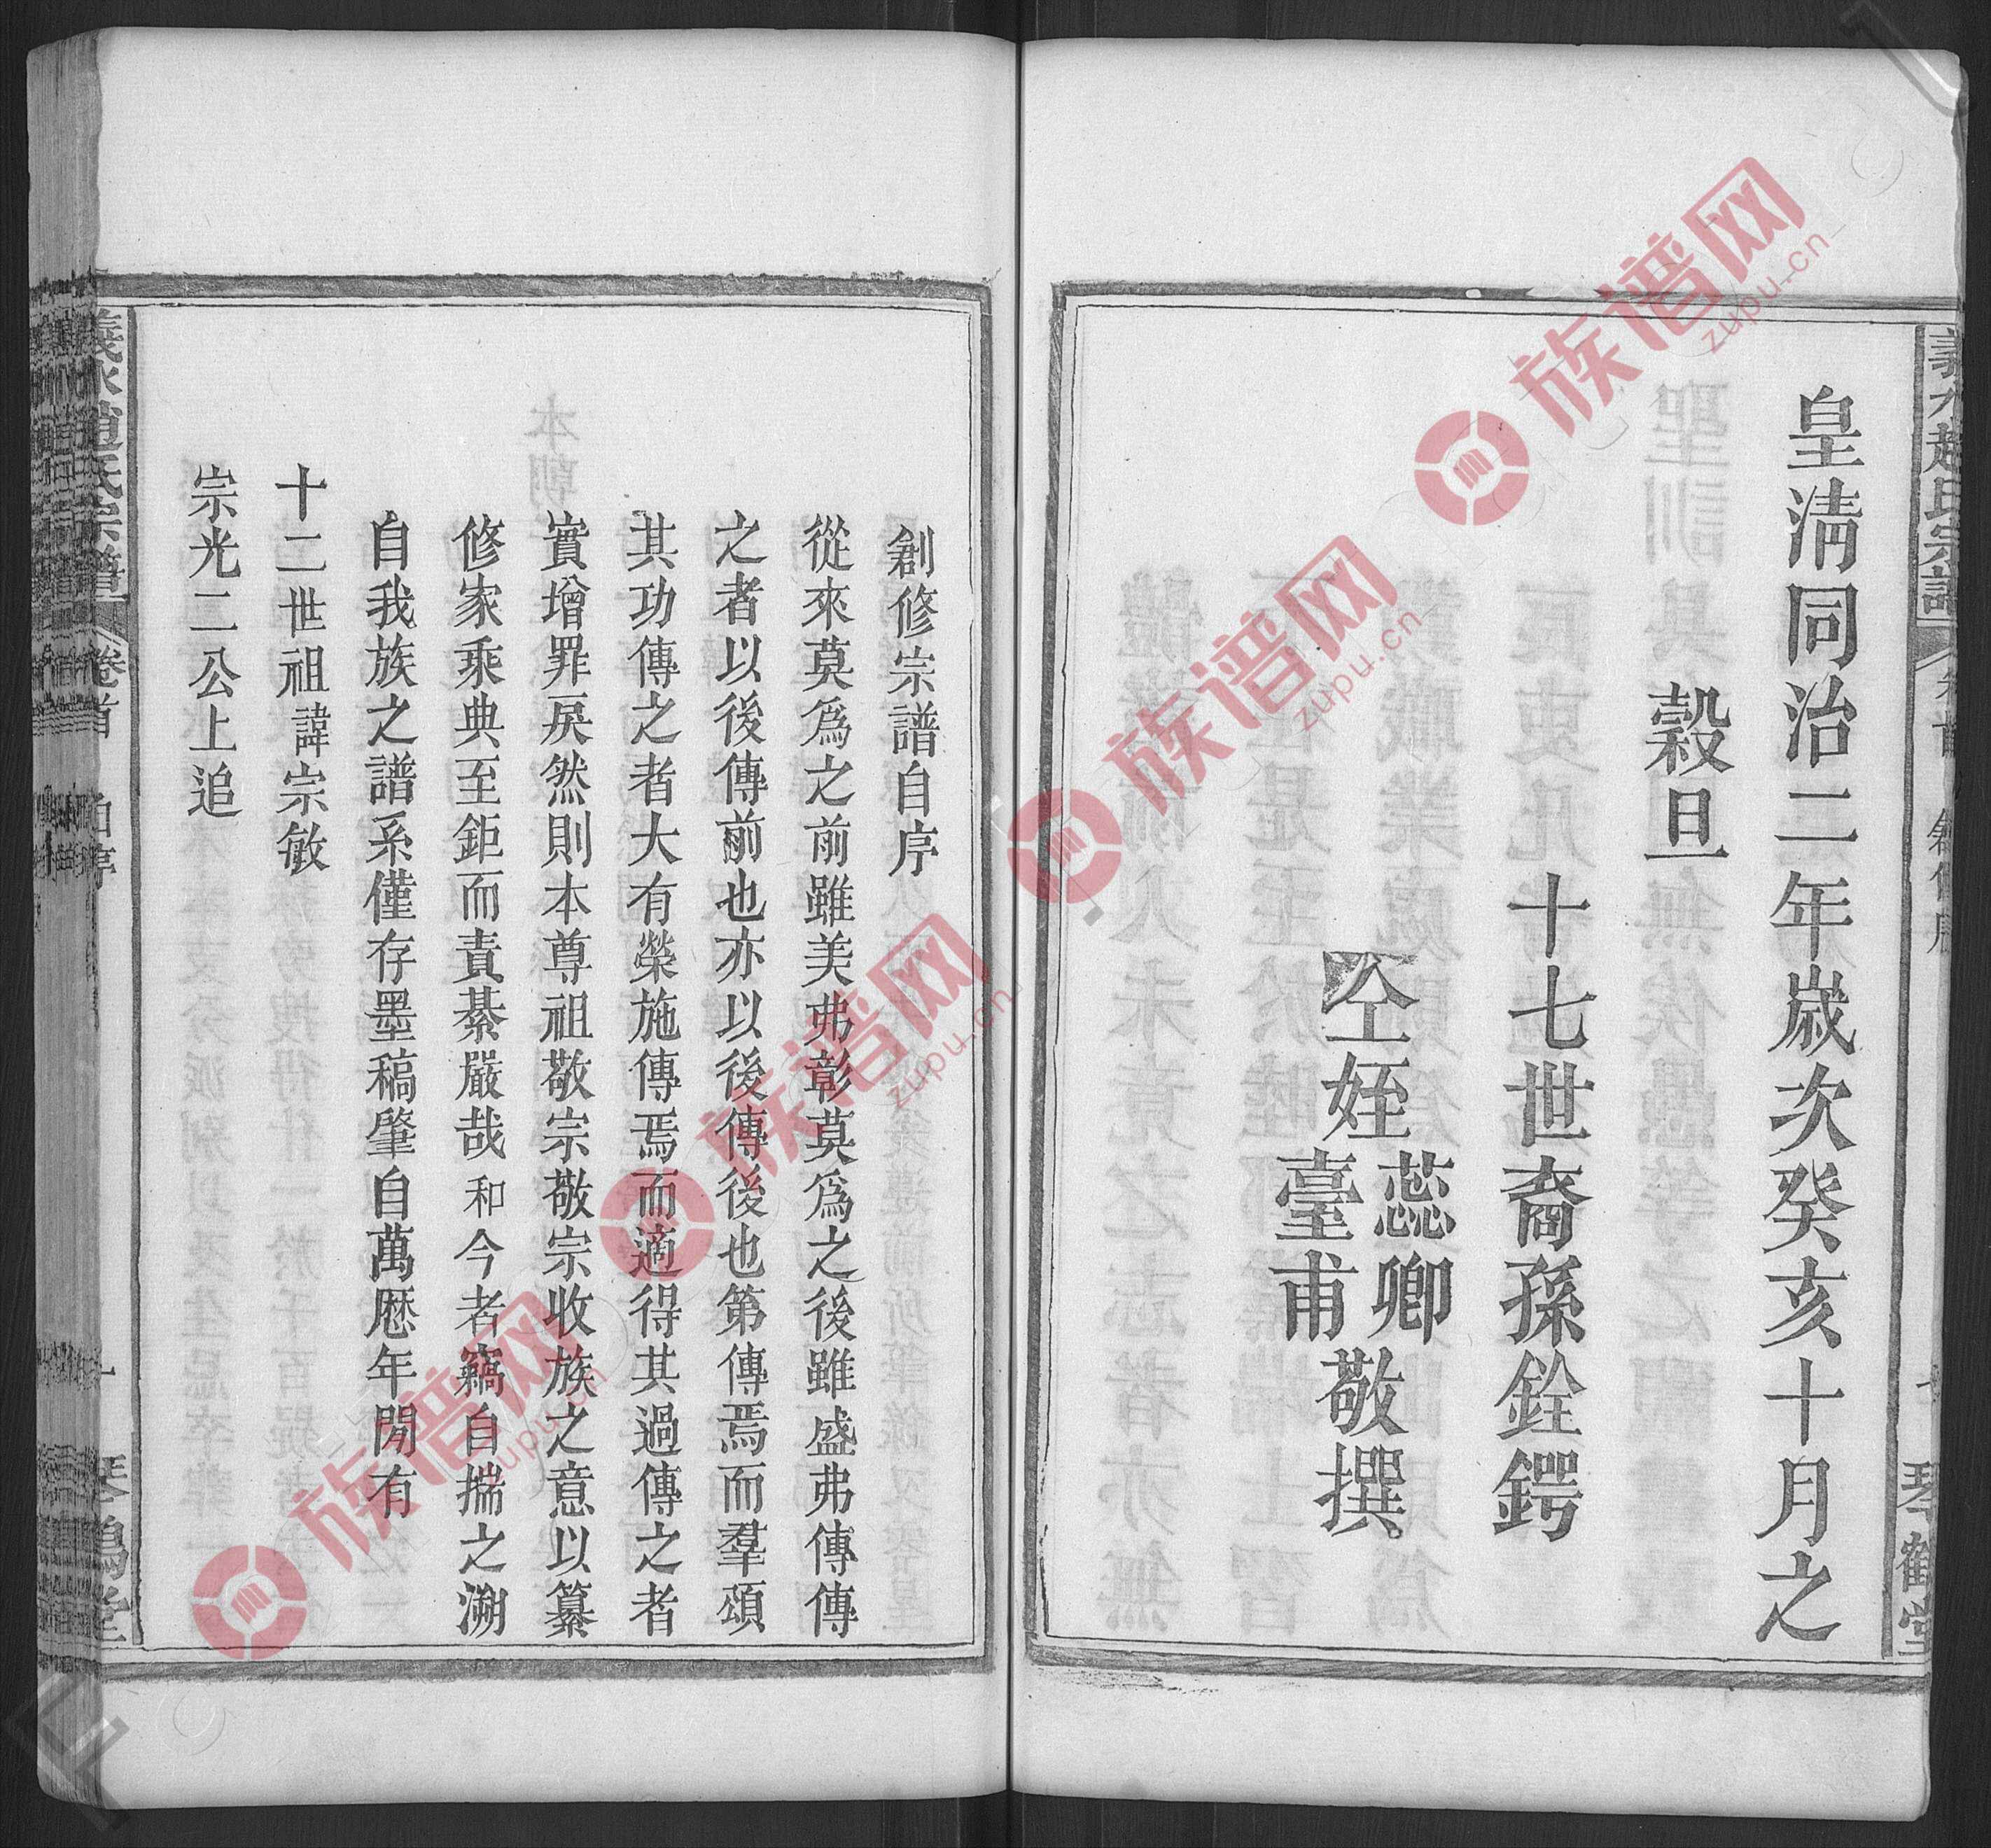 義水趙氏宗譜 卷首 創修序 七 琴鶴堂
皇清同治二年歲次癸亥十月之
穀旦
十七世裔孫銓鍔
仝姪蕊卿臺甫敬撰
創修宗譜自序
從來莫爲之前雖美弗彰莫爲之後雖盛弗傳傳
之者以後傳前也亦以後傳後也第傳焉而羣頌
其功傳之者大有榮施傳焉而適得其過傳之者
實增罪戾然則本尊祖敬宗敬宗收族之意以纂
修家乘典至鉅而責綦嚴哉和今者竊自揣之溯
自我族之譜系僅存墨稿肇自萬厯年閒有
十二世祖諱宗敏
宗光二公上追
義水趙氏宗譜 卷首 自序 一 琴鶴堂
族谱网 zupu.cn
族谱网 zupu.cn
族谱网 zupu.cn
族谱网 zupu.cn